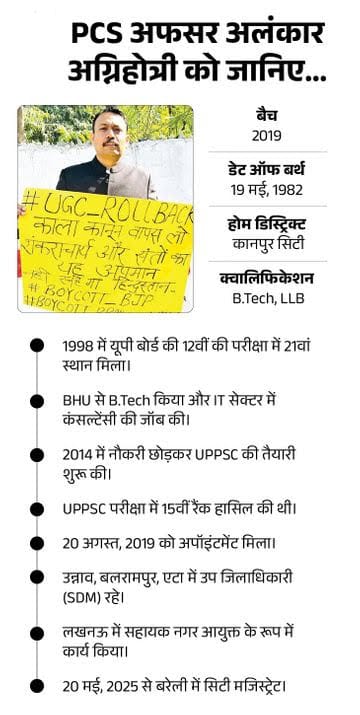 PCS अफसर अलंकार
अग्निहोत्री को जानिए...
#UGC_ROLLBACK
काला कानून वापस लो
शंकराचार्य और संतों का
यह अपमान
नहीं सहेगा हिन्दुस्तान-
# BOYCOTT_BJP
#BOYCOTT
बैच
2019
डेट ऑफ बर्थ
19 मई, 1982
होम डिस्ट्रिक्ट
कानपुर सिटी
क्वालिफिकेशन
B.Tech, LLB
1998 में यूपी बोर्ड की 12वीं की परीक्षा में 21वां
स्थान मिला।
BHU से B.Tech किया और IT सेक्टर में
कंसल्टेंसी की जॉब की।
2014 में नौकरी छोड़कर UPPSC की तैयारी
शुरू की।
UPPSC परीक्षा में 15वीं रैंक हासिल की थी।
20 अगस्त, 2019 को अपॉइंटमेंट मिला।
उन्नाव, बलरामपुर, एटा में उप जिलाधिकारी
(SDM) रहे।
लखनऊ में सहायक नगर आयुक्त के रूप में
कार्य किया।
20 मई, 2025 से बरेली में सिटी मजिस्ट्रेट।